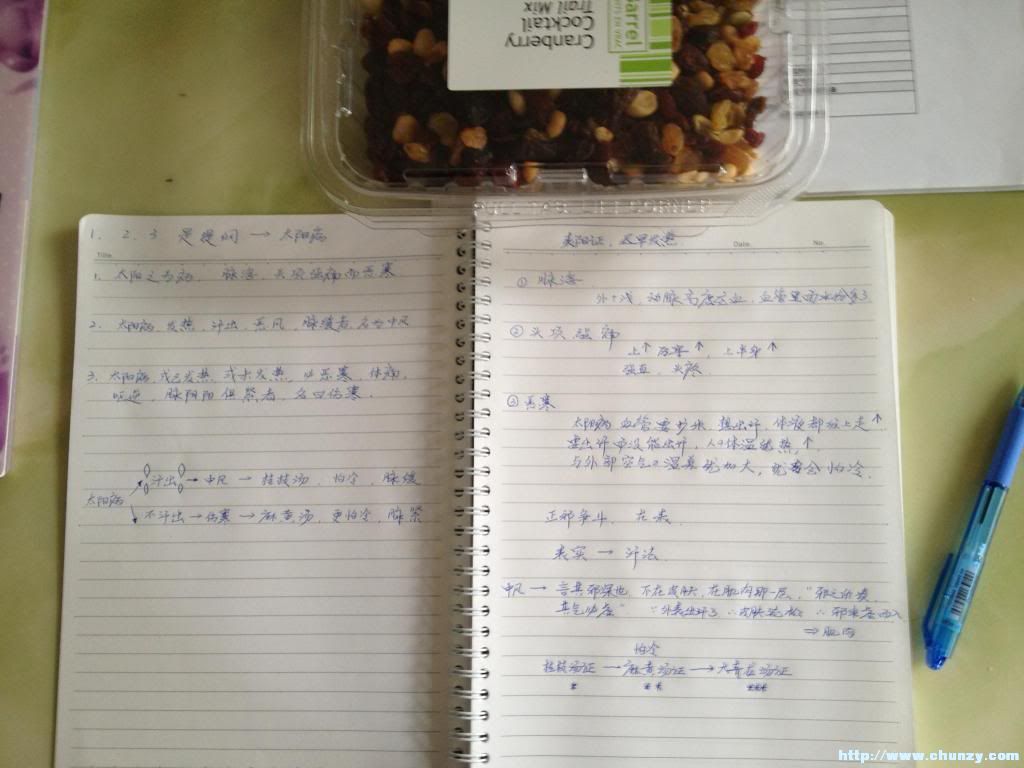 Cranberry
Cocktail
Trail Mix
barrel
1. 2. 3 是提纲 → 太阳病
Title
1. 太阳之为病, 脉浮, 头项强痛而恶寒
2. 太阳病, 发热, 汗出, 恶风, 脉缓者, 名为中风
3. 太阳病, 或已发热, 或未发热, 必恶寒, 体痛,
呕逆, 脉阴阳俱紧者, 名曰伤寒.
太阳病
汗出 → 中风 → 桂枝汤, 怕冷, 脉缓
不汗出 → 伤寒 → 麻黄汤, 更怕冷, 脉紧
表阳证, 及早发热
Date.
No.
① 脉浮
外+浅, 动脉高度充血, 血管里面水份多了
② 头项强痛
上↑ 厉害↑, 上半身↑
强直, 头疼
③ 恶寒
太阳病 血管要扩张, 想出汗, 体液都往上走↑
要出汗而没能出汗, 人的体温就热↑,
与外部空气的温差就加大, 就会怕冷.
正邪争斗, 在表.
表实 → 汗法
中风 → 言其邪深也, 不在皮肤, 在肌肉那一层, "邪之所凑,
其气必虚" ∵外表出汗了 ∴皮肤 ∴邪乘虚而入
⇒ 肌肉
怕冷
桂枝汤证 → 麻黄汤证 → 大青龙汤证
http://www.chunzy.com